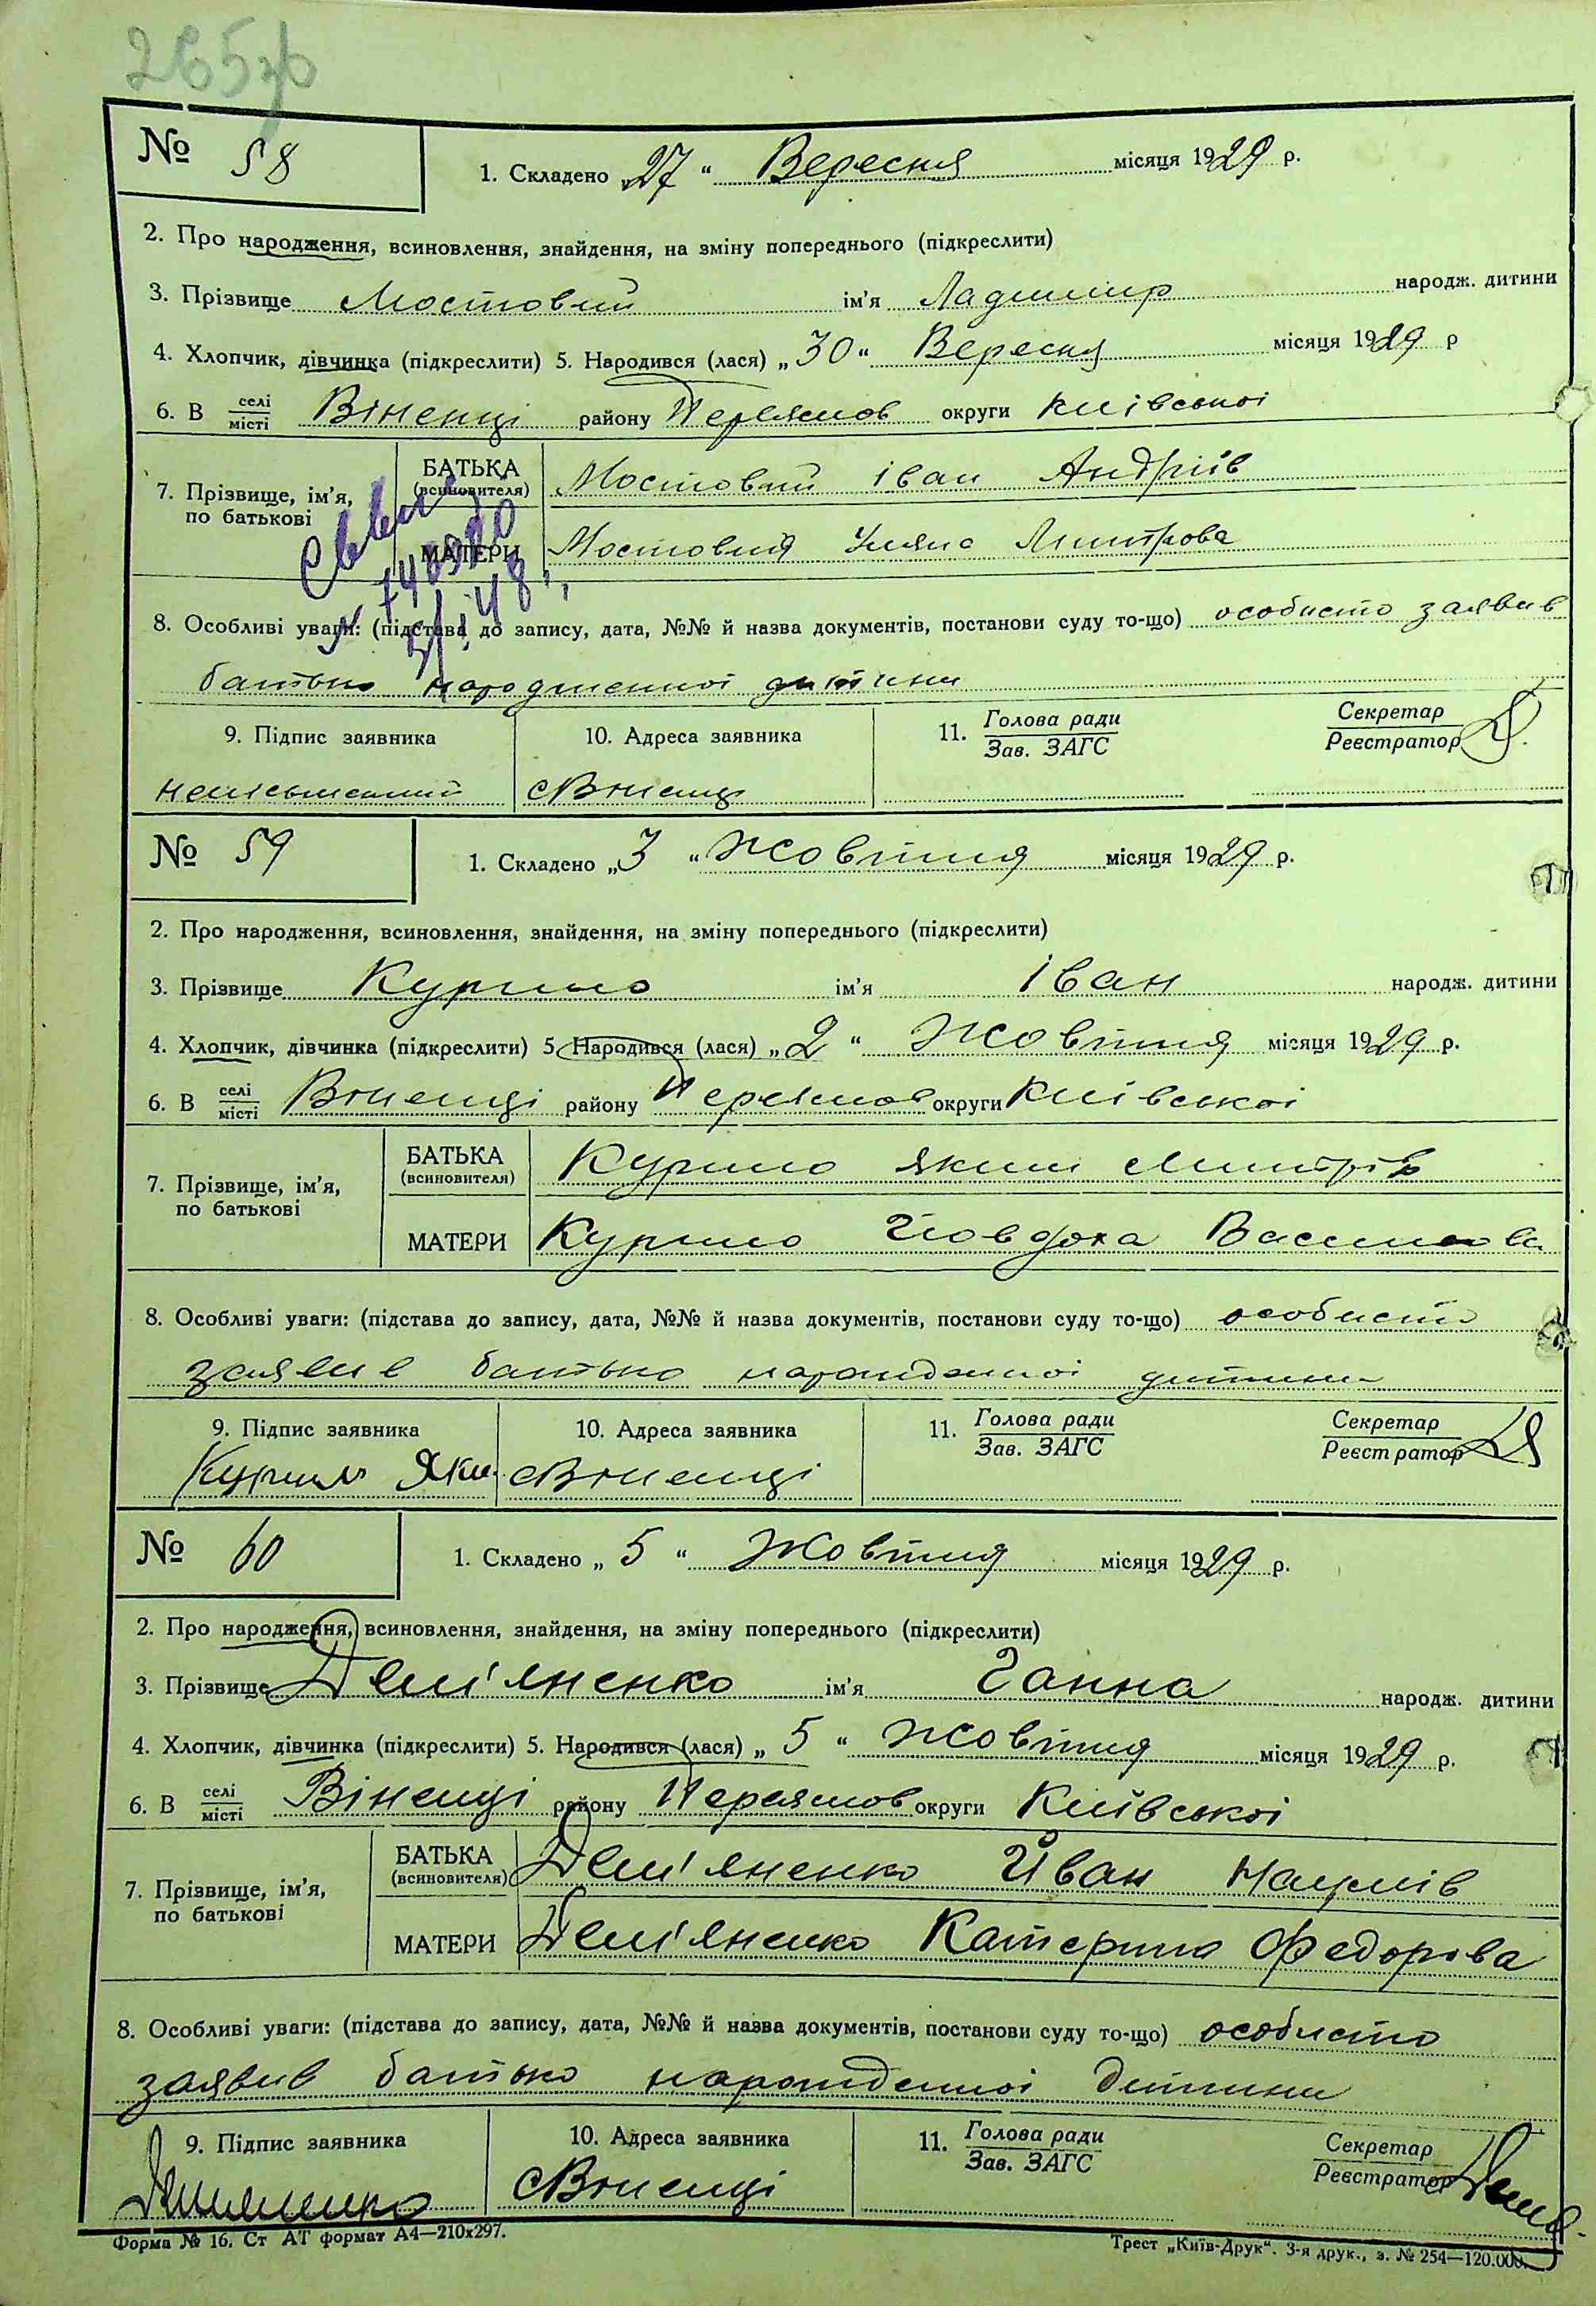 265зв
№ 58
1. Складено „27“ Вересня місяця 1929 р.
2. Про народження, всиновлення, знайдення, на зміну попереднього (підкреслити)
3. Прізвище Мостовий ім'я Ладимир народж. дитини
4. Хлопчик, дівчинка (підкреслити) 5. Народився (лася) „30“ Вересня місяця 1929 р
6. В селі/місті Віненці району Переяслов округи Київської
7. Прізвище, ім'я, по батькові
БАТЬКА (всиновителя) Мостовий Іван Андріїв
МАТЕРИ Мостовия Уляна Митрова
8. Особливі уваги: (підстава до запису, дата, №№ й назва документів, постанови суду то-що) особисто заявив
батько народженної дитини
9. Підпис заявника
10. Адреса заявника
11. Голова ради
Зав. ЗАГС
Секретар
Реєстратор
неписьменний
с Віненці
№ 59
1. Складено „3“ Жовтня місяця 1929 р.
2. Про народження, всиновлення, знайдення, на зміну попереднього (підкреслити)
3. Прізвище Курило ім'я Іван народж. дитини
4. Хлопчик, дівчинка (підкреслити) 5. Народився (лася) „2“ Жовтня місяця 1929 р.
6. В селі/місті Віненці району Переяслов округи Київської
7. Прізвище, ім'я, по батькові
БАТЬКА (всиновителя) Курило Яким Митрів
МАТЕРИ Курило Йовдоха Василова
8. Особливі уваги: (підстава до запису, дата, №№ й назва документів, постанови суду то-що) особисто
заявив батько народженної дитини
9. Підпис заявника
10. Адреса заявника
11. Голова ради
Зав. ЗАГС
Секретар
Реєстратор
Курило Яким
с Віненці
№ 60
1. Складено „5“ Жовтня місяця 1929 р.
2. Про народження, всиновлення, знайдення, на зміну попереднього (підкреслити)
3. Прізвище Дем'яненко ім'я Ганна народж. дитини
4. Хлопчик, дівчинка (підкреслити) 5. Народився (лася) „5“ Жовтня місяця 1929 р.
6. В селі/місті Віненці району Переяслов округи Київської
7. Прізвище, ім'я, по батькові
БАТЬКА (всиновителя) Дем'яненко Йван Наумів
МАТЕРИ Дем'яненко Катерина Федорова
8. Особливі уваги: (підстава до запису, дата, №№ й назва документів, постанови суду то-що) особисто
заявив батько народженної дитини
9. Підпис заявника
10. Адреса заявника
11. Голова ради
Зав. ЗАГС
Секретар
Реєстратор
с Віненці
Форма № 16. Ст АТ формат А4—210х297.
Трест „Київ-Друк“. 3-я друк., з. № 254—120.000.